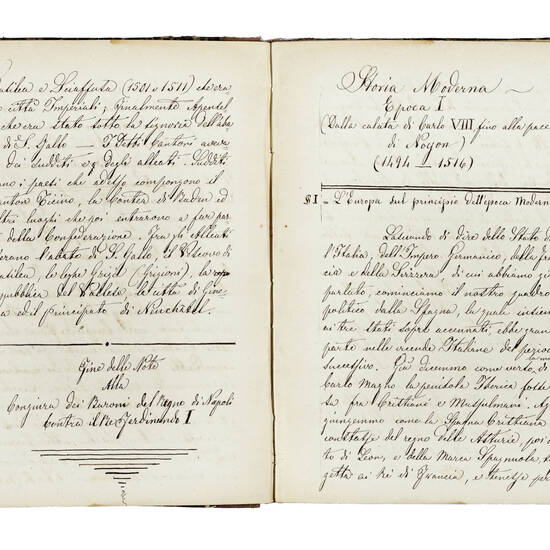 atilea e Sciaffusa (1501 e 1511) che era
città Imperiali; finalmente Apenzel
che era stato sotto la signoria dell'aba
di S. Gallo — I detti Cantoni aveva
dei sudditi e degli alleati. Sudditi
ano i paesi che adesso compongono il
anton Ticino, la Contea di Baden ed
ltri luoghi che poi entrarono a far par
della Confederazione. Fra gli alleati
erano l'abate di S. Gallo, il Vescovo di
atilea, le leghe Grigie (Grigioni), la
pubblica del Vallese, la città di Gine
ed il principato di Neuchatel.
Fine delle Note
Alla
Congiura dei Baroni del Regno di Napoli
Contro il Re Ferdinando I
Storia Moderna
Epoca I
(Dalla calata di Carlo VIII fino alla pace
di Noyon)
(1494 — 1516)
§ I — L'Europa sul principio dell'epoca Modern
Lasciando di dire dello Stato d
l'Italia, dell'Impero Germanico, della fra
cia e della Svizzera, di cui abbiamo già
parlato, cominciamo il nostro quadro
politico dalla Spagna, la quale insiem
ai tre stati sopra accennati, ebbe gran
parte nelle vicende Italiane del period
successivo. Già dicemmo come verso i
Carlo Magno la penisola Iberica fosse
sa fra Cristiani e Musulmani. Ag
giungemmo come la Spagna Cristiana
constasse del regno delle Asturie, poi
to di Leon, e della Marca Spagnuola,
getta ai Re di Francia, e